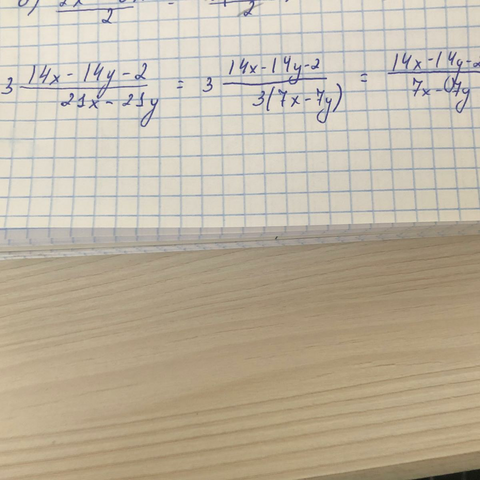 2
2
3 14x-14y-2 / 21x-21y = 3 14x-14y-2 / 3(7x-7y) = 14x-14y-2 / 7x-7y